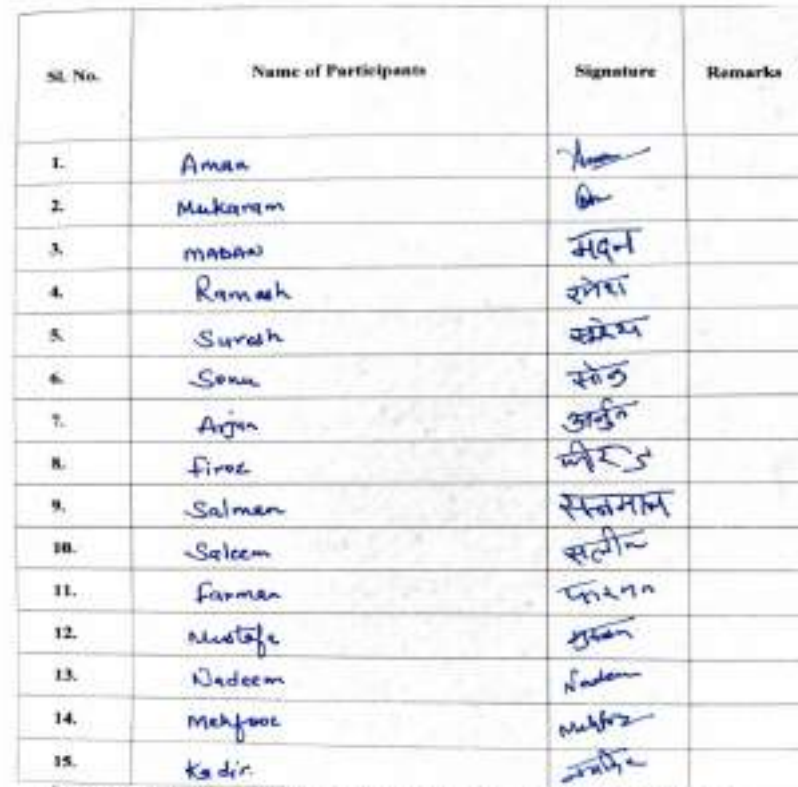 Sl. No. Name of Participants Signature Remarks
1. Aman
2. Mukaram
3. MADAN मदन
4. Ramesh रमेश
5. Suresh सुरेश
6. Sonu सोनु
7. Arjun अर्जुन
8. Firoz
9. Salman सलमान
10. Saleem सलीम
11. Farman
12. Mustafa
13. Nadeem Nadeem
14. Mehfooz Mehfoz
15. Kadir